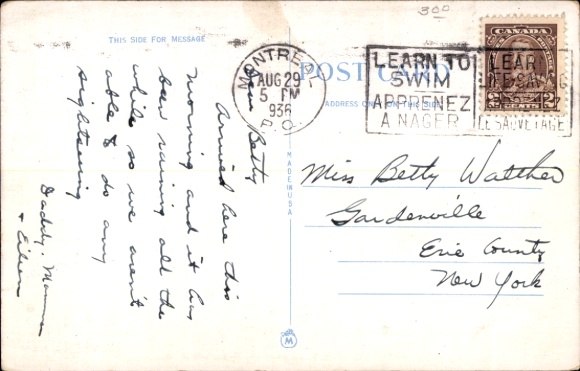 300
THIS SIDE FOR MESSAGE
POST CARD
ADDRESS ONLY ON THIS SIDE
MONTREAL
AUG 29
5 PM
1936
P.Q.
LEARN TO
SWIM
APPRENEZ
A NAGER
LEARN
LIFE SAVING
LE SAUVETAGE
CANADA
2
Dear Betty
Arrived here this
morning and it has
been raining all the
while so we aren't
able to do any
sightseeing
Daddy, Mamma
+ Eileen
MADE IN USA
M
Miss Betty Walther
Gardenville
Erie County
New York